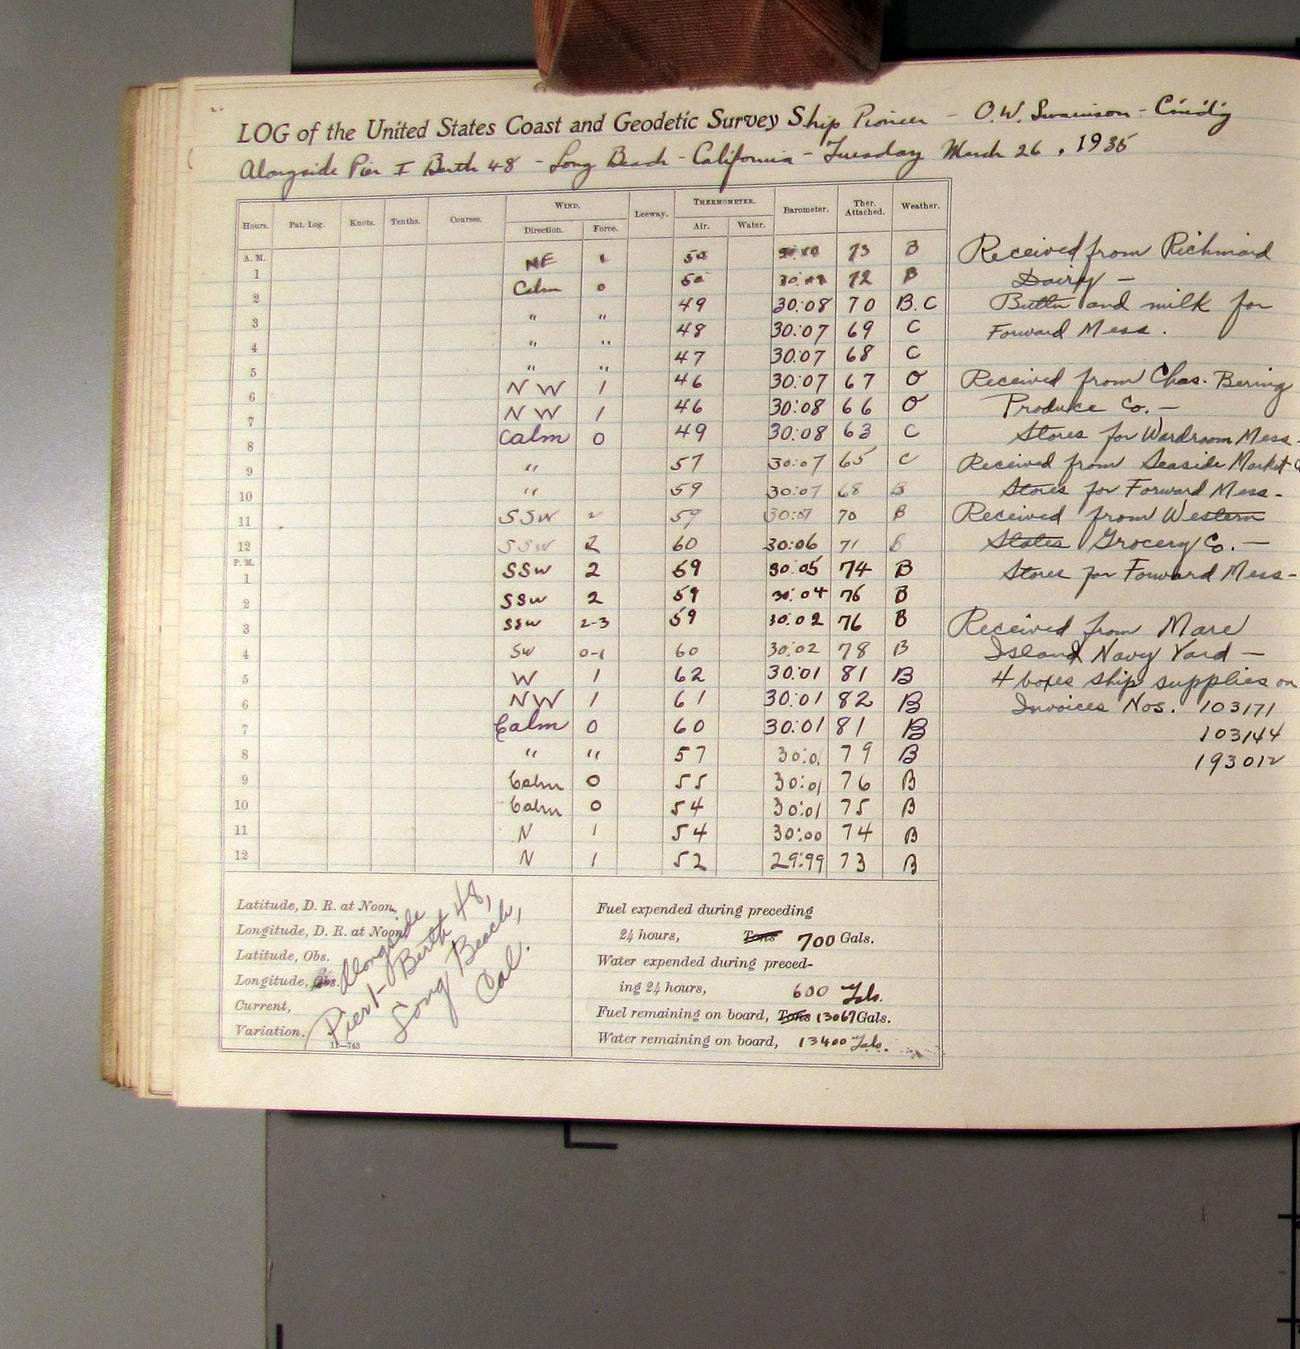 LOG of the United States Coast and Geodetic Survey Ship Pioneer - O.W. Swainson - Cmd'g
Alongside Pier I Berth 48 - Long Beach - California - Tuesday March 26, 1935
Hours. Pat. Log. Knots. Tenths. Courses. WIND. Direction. Force. Leeway. THERMOMETER. Air. Water. Barometer. Ther. Attached. Weather.
A. M.
1 NE 1 50 73 B
2 Calm 0 50 72 B
3 " " 49 30:08 70 B.C
4 " " 48 30:07 69 C
5 " " 47 30:07 68 C
6 NW 1 46 30:07 67 O
7 NW 1 46 30:08 66 O
8 Calm 0 49 30:08 63 C
9 " 57 30:07 65 C
10 " 59 30:07 68 B
11 SSW 2 59 30:07 70 B
12 SSW 2 60 30:06 71 B
P. M.
1 SSW 2 59 30:05 74 B
2 SSW 2 59 30:04 76 B
3 SSW 2-3 59 30:02 76 B
4 SW 0-1 60 30:02 78 B
5 W 1 62 30:01 81 B
6 NW 1 61 30:01 82 B
7 Calm 0 60 30:01 81 B
8 " " 57 30:01 79 B
9 Calm 0 55 30:01 76 B
10 Calm 0 54 30:01 75 B
11 N 1 54 30:00 74 B
12 N 1 52 29:99 73 B
Received from Richmaid
Dairy -
Butter and milk for
Forward Mess.
Received from Chas. Bering
Produce Co. -
Stores for Wardroom Mess -
Received from Seaside Market
Stores for Forward Mess -
Received from Western
States Grocery Co. -
Stores for Forward Mess -
Received from Mare
Island Navy Yard -
4 boxes ship supplies on
Invoices Nos. 103171
103144
193012
Latitude, D. R. at Noon,
Longitude, D. R. at Noon,
Latitude, Obs.
Longitude, Obs.
Current,
Variation.
11-743
Alongside
Pier 1 - Berth 48,
Long Beach,
Cal.
Fuel expended during preceding
24 hours, Tons 700 Gals.
Water expended during preced-
ing 24 hours, 600 Gals.
Fuel remaining on board, Tons 13067 Gals.
Water remaining on board, 13400 Gals.